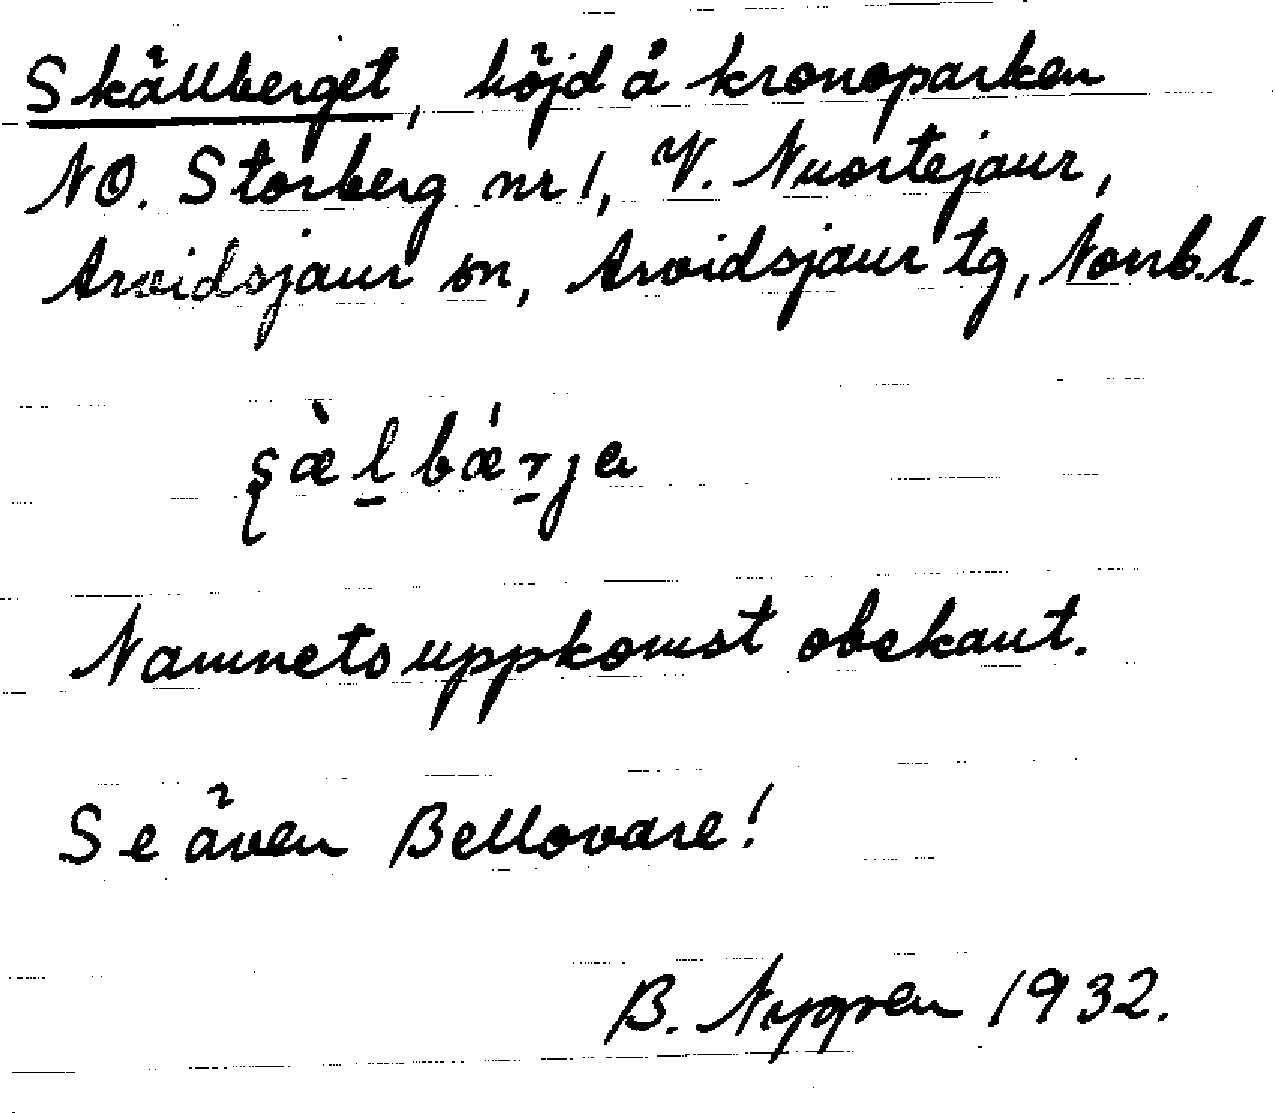 Skällberget, höjd å kronoparken
NO. Storberg nr 1, V. Nuortejaur,
Arvidsjaur sn, Arvidsjaur tg, Norrb.l.
ʂæ̀l̠bǽr̠ja
Namnets uppkomst obekant.
Se även Bellovare!
B. Nygren 1932.